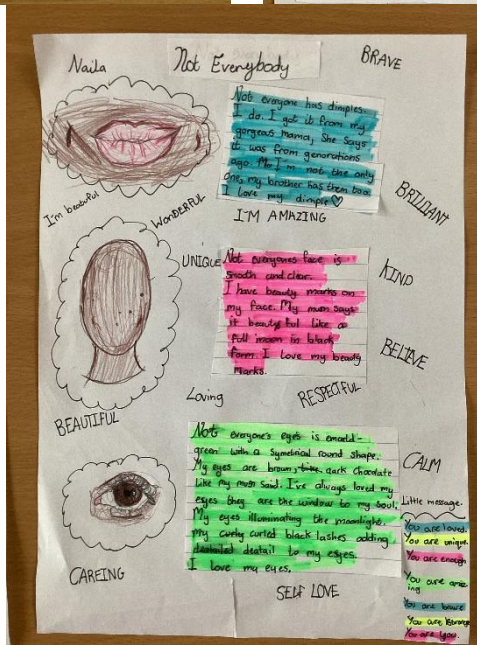 Naila
Not Everybody
BRAVE
Not everyone has dimples.
I do. I got it from my
gorgeous mama, She says
it was from generations
ago. I'm not the only
one, my brother has them too
I love my dimple♡
I'm beautuful
WONDERFUL
I'M AMAZING
BRILLIANT
UNIQUE
Not everyones face is
smooth and clear.
I have beauty marks on
my face. My mum says
it beautyful like a
full moon in black
form. I love my beauty
marks.
KIND
BELIEVE
Loving
RESPECTFUL
BEAUTIFUL
Not everyone's eyes is emerald-
green with a symetrical round shape.
My eyes are brown, dark chocolate
like my mum said. I've always loved my
eyes they are the window to my soul.
My eyes illuminating the moonlight.
my curly curled black lashes adding
deatail to my eyes.
I love my eyes.
CALM
Little message.
You are loved.
You are unique.
You are enough
You are amaz
ing
You are brave
You are strong
You are you.
CAREING
SELF LOVE